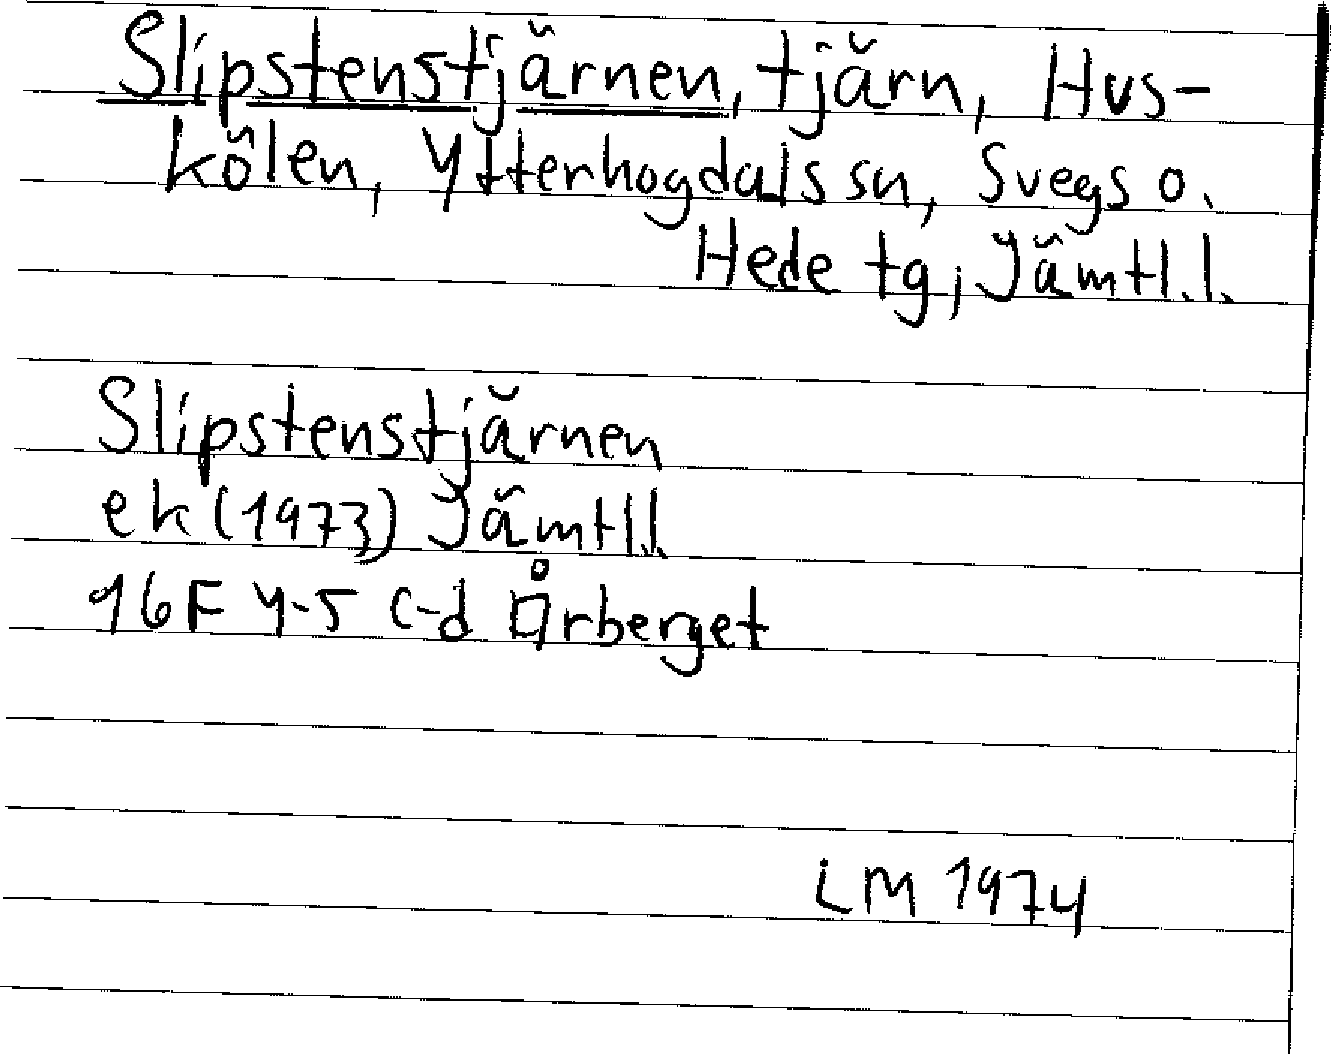 Slipstenstjärnen, tjärn, Hus-
kölen, Ytterhogdals sn, Svegs o.
Hede tg, Jämtl.l.
Slipstenstjärnen
ek (1973) Jämtl.l.
16F 4-5 c-d Örberget
LM 1974